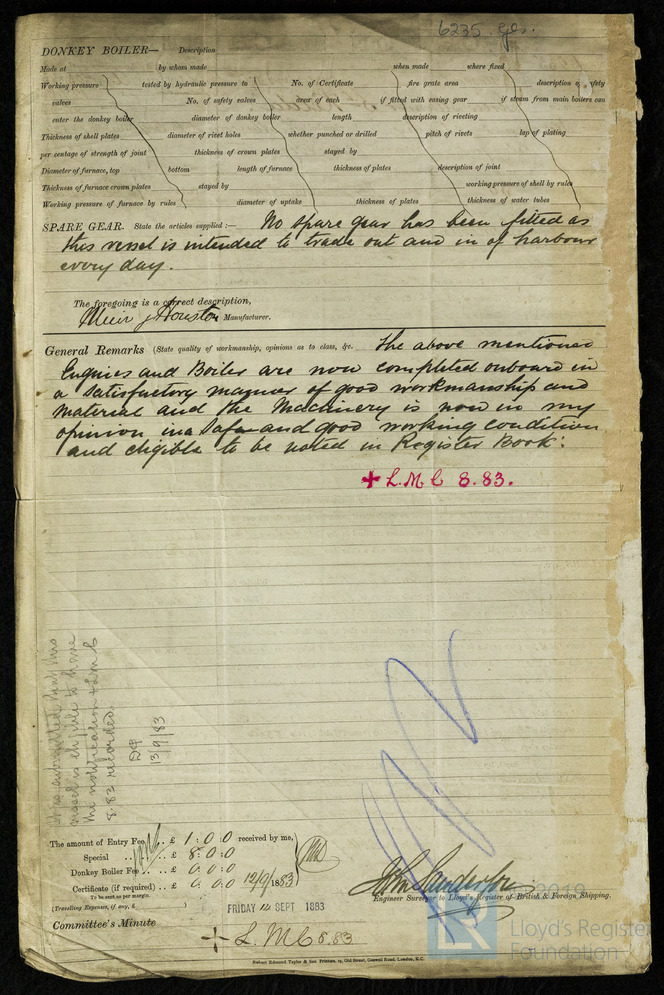 6235 gls.
DONKEY BOILER— Description
Made at by whom made when made where fixed
Working pressure tested by hydraulic pressure to No. of Certificate fire grate area description of safety
valves No. of safety valves area of each if fitted with easing gear if steam from main boilers can
enter the donkey boiler diameter of donkey boiler length description of riveting
Thickness of shell plates diameter of rivet holes whether punched or drilled pitch of rivets lap of plating
per centage of strength of joint thickness of crown plates stayed by
Diameter of furnace, top bottom length of furnace thickness of plates description of joint
Thickness of furnace crown plates stayed by working pressure of shell by rules
Working pressure of furnace by rules diameter of uptake thickness of plates thickness of water tubes
SPARE GEAR. State the articles supplied :— No spare gear has been fitted as
this vessel is intended to trade out and in of harbour
every day.
The foregoing is a correct description,
Muir & Houston Manufacturer.
General Remarks (State quality of workmanship, opinions as to class, &c. The above mentioned
Engines and Boiler are now completed onboard in
a satisfactory manner of good workmanship and
material and the Machinery is now in my
opinion in a safe and good working condition
and eligible to be noted in Register Book.
+ L.M.C 8.83.
It is submitted that this
vessel is eligible to have
the notification + LMC
8.83 recorded.
13/9/83
The amount of Entry Fee .. £ 1 : 0 : 0 received by me,
Special .. £ 8 : 0 : 0
Donkey Boiler Fee .. £ 0 : 0 : 0
Certificate (if required) .. £ 0 : 0 : 0 12/9/1883
To be sent as per margin.
(Travelling Expenses, if any, £ )
John Sanderson
Engineer Surveyor to Lloyd's Register of British & Foreign Shipping.
FRIDAY 14 SEPT 1883
Committee's Minute
+ L.M.C 8.83
Robert Edmund Taylor & Son Printers, 19, Old Street, Goswell Road, London, E.C.
2019
Lloyd's Register
Foundation